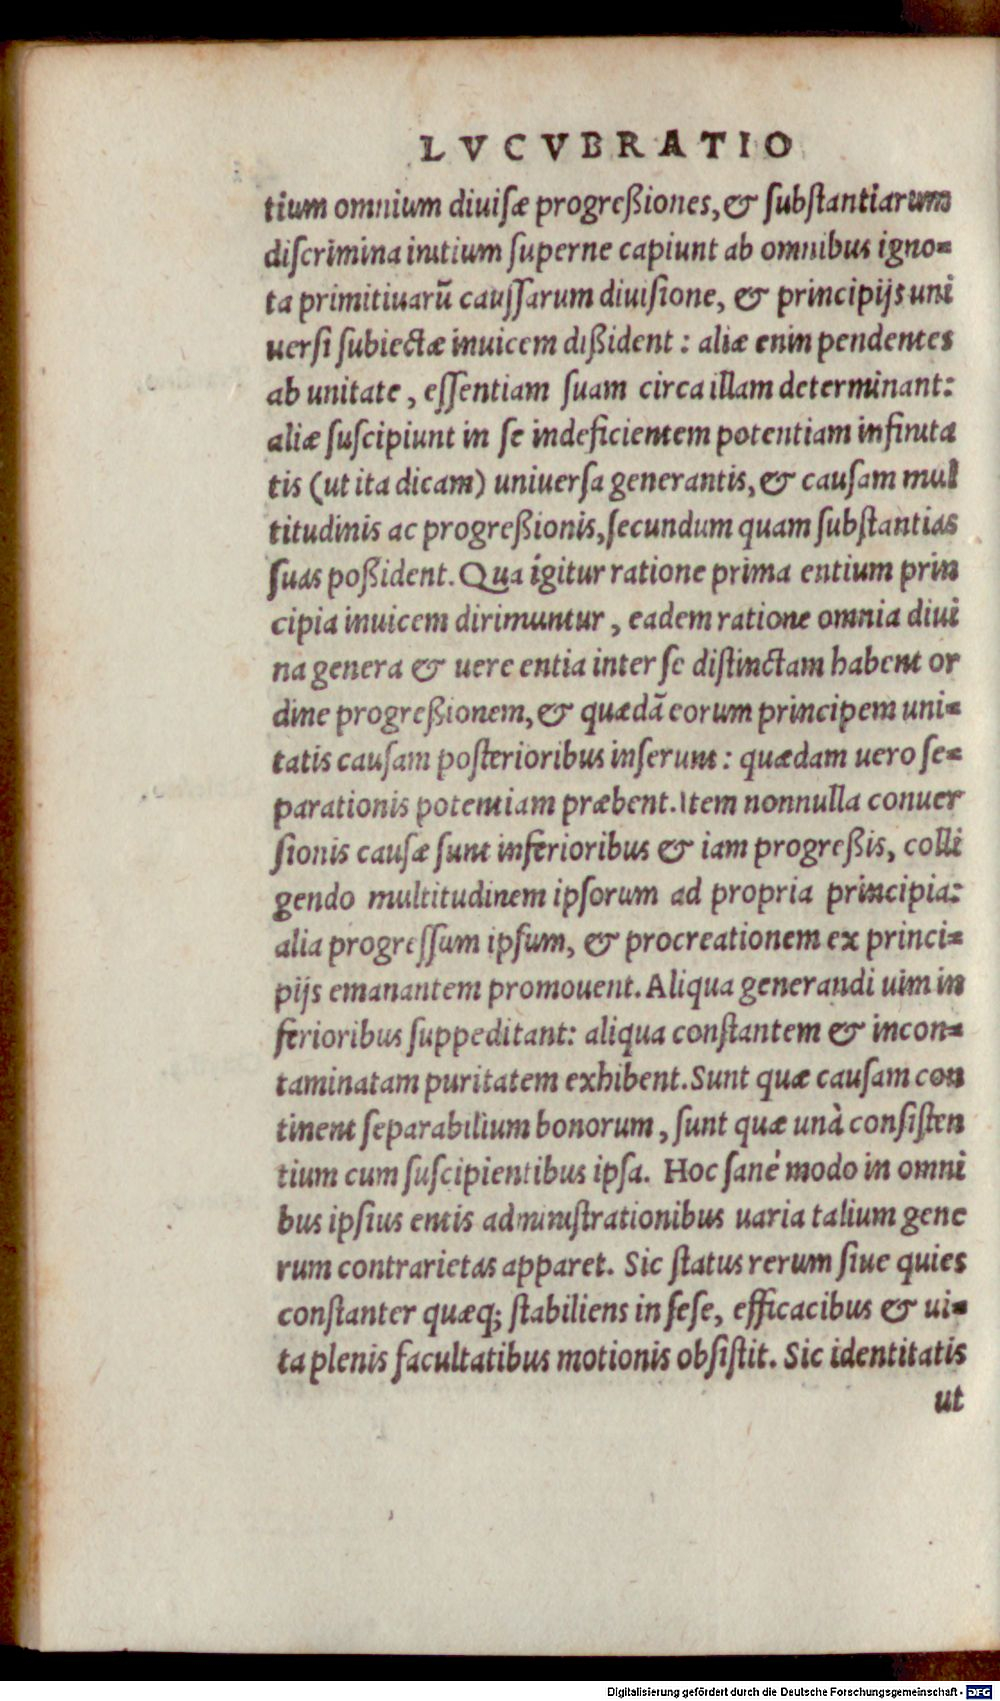 LVCVBRATIO
tium omnium diuisæ progreßiones, & substantiarum
discrimina initium superne capiunt ab omnibus igno=
ta primitiuarū caussarum diuisione, & principijs uni
uersi subiectæ inuicem dißident : aliæ enin pendentes
ab unitate , essentiam suam circa illam determinant:
aliæ suscipiunt in se indeficientem potentiam infinita
tis (ut ita dicam) uniuersa generantis, & causam mul
titudinis ac progreßionis, secundum quam substantias
suas poßident. Qua igitur ratione prima entium prin
cipia inuicem dirimuntur , eadem ratione omnia diui
na genera & uere entia inter se distinctam habent or
dine progreßionem, & quædā eorum principem uni=
tatis causam posterioribus inserunt : quædam uero se=
parationis potentiam præbent. Item nonnulla conuer
sionis causæ sunt inferioribus & iam progreßis, colli
gendo multitudinem ipsorum ad propria principia:
alia progressum ipsum, & procreationem ex princi=
pijs emanantem promouent. Aliqua generandi uim in
ferioribus suppeditant: aliqua constantem & incon=
taminatam puritatem exhibent. Sunt quæ causam con
tinent separabilium bonorum , sunt quæ unà consisten
tium cum suscipientibus ipsa. Hoc sané modo in omni
bus ipsius entis administrationibus uaria talium gene
rum contrarietas apparet. Sic status rerum siue quies
constanter quæq; stabiliens in sese, efficacibus & ui=
ta plenis facultatibus motionis obsistit. Sic identitatis
ut
Digitalisierung gefördert durch die Deutsche Forschungsgemeinschaft - DFG